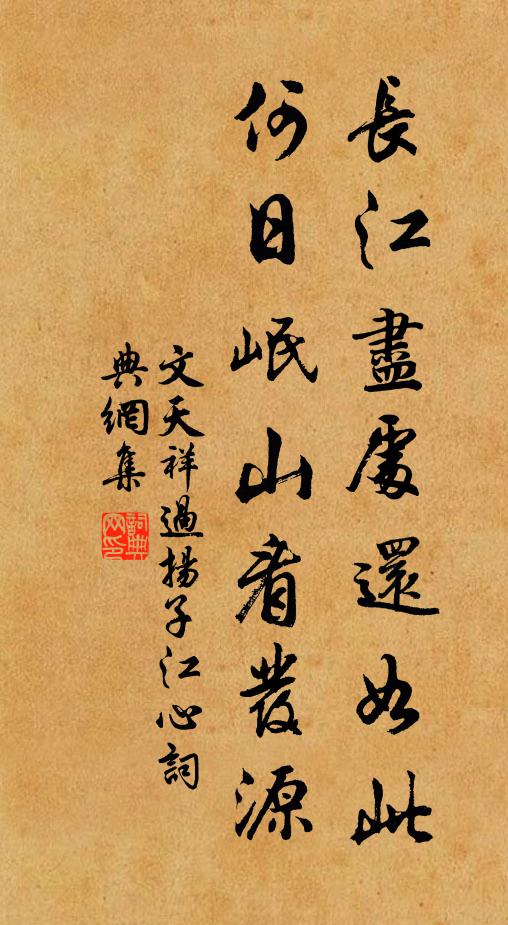 長江盡處還如此
何日岷山看發源
文天祥過揚子江心詞
典網集
詞典網印